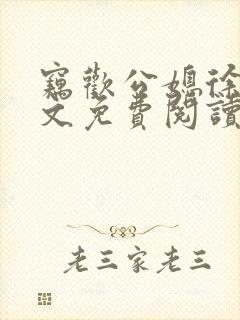 竊歡公媳徐
文免費閱讀
老三家老三